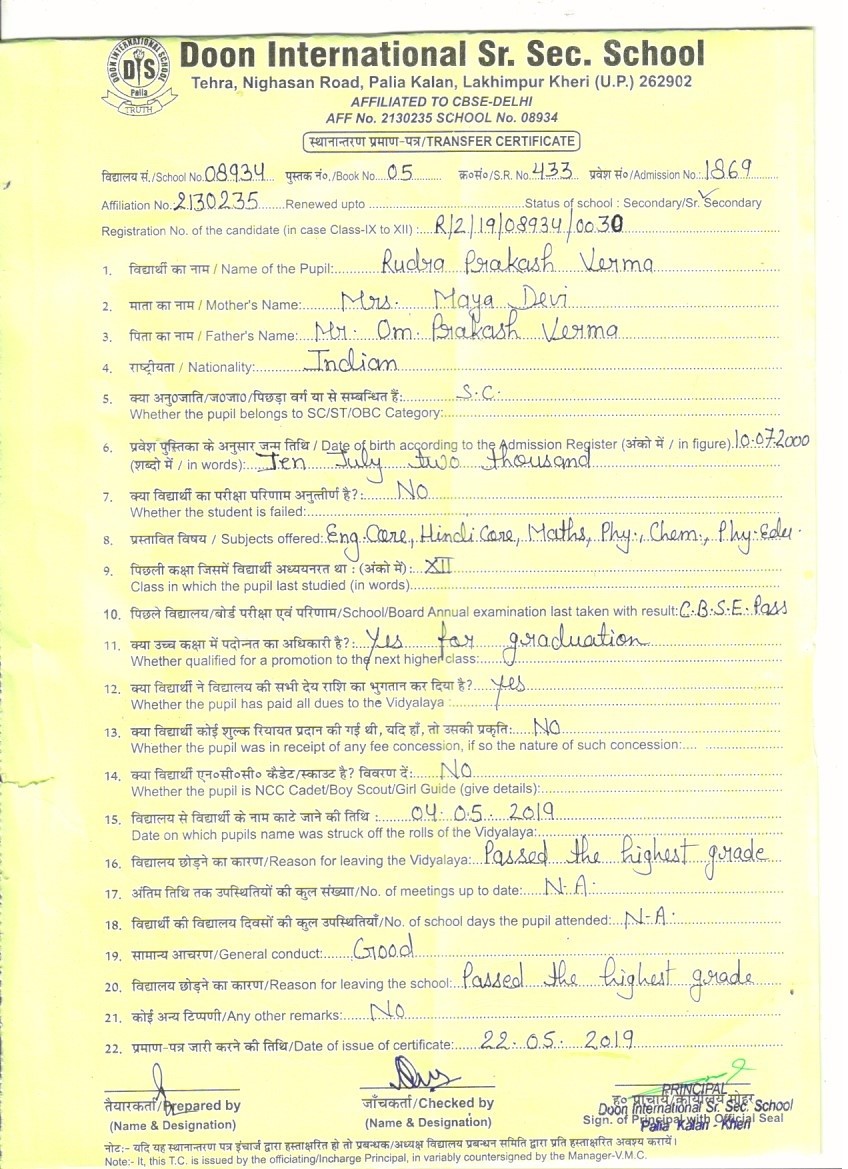 DOON INTERNATIONAL SCHOOL
DIS
Palia
TRUTH
Doon International Sr. Sec. School
Tehra, Nighasan Road, Palia Kalan, Lakhimpur Kheri (U.P.) 262902
AFFILIATED TO CBSE-DELHI
AFF No. 2130235 SCHOOL No. 08934
स्थानान्तरण प्रमाण-पत्र/TRANSFER CERTIFICATE
विद्यालय सं./School No. 08934 पुस्तक नं०/Book No. 05 क्र०सं०/S.R. No. 433 प्रवेश सं०/Admission No.: 1869
Affiliation No.: 2130235 Renewed upto Status of school : Secondary/Sr. Secondary
Registration No. of the candidate (in case Class-IX to XII) : R/2/19/08934/0030
1. विद्यार्थी का नाम / Name of the Pupil: Rudra Prakash Verma
2. माता का नाम / Mother's Name: Mrs. Maya Devi
3. पिता का नाम / Father's Name: Mr. Om Prakash Verma
4. राष्ट्रीयता / Nationality: Indian
5. क्या अनु०जाति/ज०जा०/पिछड़ा वर्ग या से सम्बन्धित हैं: S.C.
Whether the pupil belongs to SC/ST/OBC Category:
6. प्रवेश पुस्तिका के अनुसार जन्म तिथि / Date of birth according to the Admission Register (अंको में / in figure). 10.07.2000
(शब्दो में / in words): Ten July two thousand
7. क्या विद्यार्थी का परीक्षा परिणाम अनुत्तीर्ण है?: NO
Whether the student is failed:
8. प्रस्तावित विषय / Subjects offered: Eng. Core, Hindi Core, Maths, Phy., Chem., Phy. Edu.
9. पिछली कक्षा जिसमें विद्यार्थी अध्ययनरत था : (अंको में): XII
Class in which the pupil last studied (in words)
10. पिछले विद्यालय/बोर्ड परीक्षा एवं परिणाम/School/Board Annual examination last taken with result: C.B.S.E. Pass
11. क्या उच्च कक्षा में पदोन्नत का अधिकारी है?: Yes for graduation
Whether qualified for a promotion to the next higher class:
12. क्या विद्यार्थी ने विद्यालय की सभी देय राशि का भुगतान कर दिया है? Yes
Whether the pupil has paid all dues to the Vidyalaya :
13. क्या विद्यार्थी कोई शुल्क रियायत प्रदान की गई थी, यदि हाँ, तो उसकी प्रकृति: NO
Whether the pupil was in receipt of any fee concession, if so the nature of such concession:
14. क्या विद्यार्थी एन०सी०सी० कैडेट/स्काउट है? विवरण दें: NO
Whether the pupil is NCC Cadet/Boy Scout/Girl Guide (give details):
15. विद्यालय से विद्यार्थी के नाम काटे जाने की तिथि : 04.05.2019
Date on which pupils name was struck off the rolls of the Vidyalaya:
16. विद्यालय छोड़ने का कारण/Reason for leaving the Vidyalaya: Passed the highest grade
17. अंतिम तिथि तक उपस्थितियों की कुल संख्या/No. of meetings up to date: N.A.
18. विद्यार्थी की विद्यालय दिवसों की कुल उपस्थितियाँ/No. of school days the pupil attended: N.A.
19. सामान्य आचरण/General conduct: Good
20. विद्यालय छोड़ने का कारण/Reason for leaving the school: Passed the highest grade
21. कोई अन्य टिप्पणी/Any other remarks: No
22. प्रमाण-पत्र जारी करने की तिथि/Date of issue of certificate: 22.05.2019
तैयारकर्ता/Prepared by जाँचकर्ता/Checked by ह० प्राचार्य/कार्यालय मोहर
(Name & Designation) (Name & Designation) Sign. of Principal with Official Seal
PRINCIPAL
Doon International Sr. Sec. School
Palia Kalan - Kheri
नोट:- यदि यह स्थानान्तरण पत्र इंचार्ज द्वारा हस्ताक्षरित हो तो प्रबन्धक/अध्यक्ष विद्यालय प्रबन्धन समिति द्वारा प्रति हस्ताक्षरित अवश्य करायें।
Note:- It, this T.C. is issued by the officiating/Incharge Principal, in variably countersigned by the Manager-V.M.C.